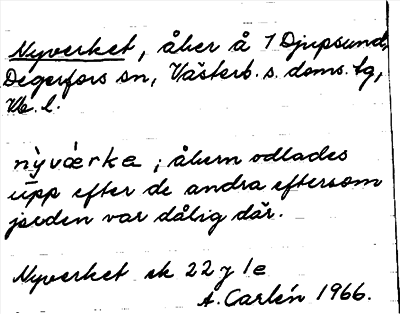 Nyverket, åker å 1 Djupsund,
Degerfors sn, Västerb. s. doms. tg,
Vb. l.
nỳvǽrka; åkern odlades
upp efter de andra eftersom
jorden var dålig där.
Nyverket ek 22 y 1e
A. Carlén 1966.